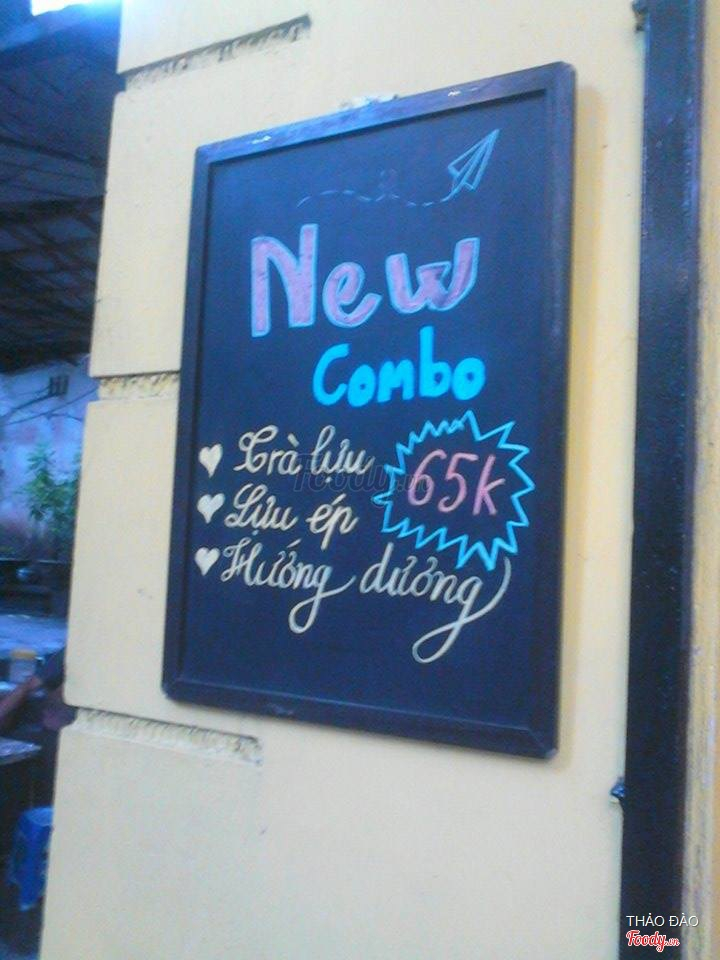 New
Combo
Trà lựu
65k
Lựu ép
Hướng dương
Foody.vn
THẢO ĐÀO
Foody.vn